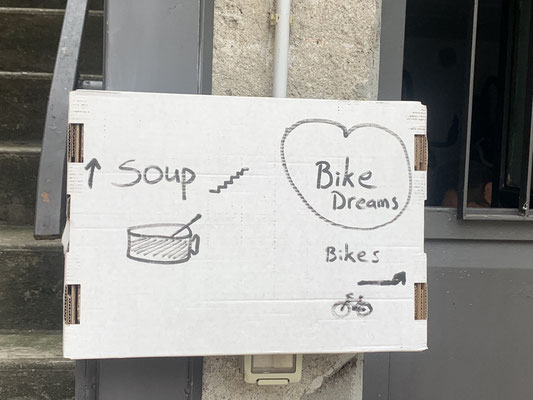 Soup
Bike
Dreams
Bikes